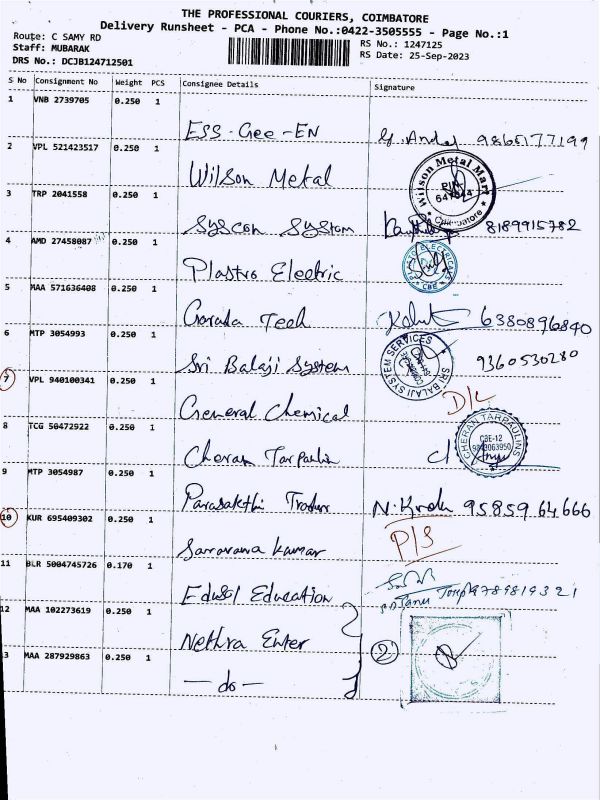 THE PROFESSIONAL COURIERS, COIMBATORE
Delivery Runsheet - PCA - Phone No.:0422-3505555 - Page No.:1
Route: C SAMY RD
Staff: MUBARAK
DRS No.: DCJB124712501
RS No.: 1247125
RS Date: 25-Sep-2023
S No Consignment No Weight PCS Consignee Details Signature
1 VNB 2739705 0.250 1
ESS-Gee-EN 9865177199
2 VPL 521423517 0.250 1
Wilson Metal
Wilson Metal Mart
PIN
Coimbatore
3 TRP 2041558 0.250 1
Syscon System 8189915782
4 AMD 27458087 0.250 1
Plastro Electric
CBE
5 MAA 571636408 0.250 1
Garuda Tech 6380896840
6 MTP 3054993 0.250 1
Sri Balaji System 9360530280
SRI BALAJI SYSTEM SERVICES
7 VPL 940100341 0.250 1
General Chemical D/L
8 TCG 50472922 0.250 1
Cheran Tarpaulin
CHERAN TARPAULINS
CBE-12
9843063950
9 MTP 3054987 0.250 1
Parasakthi Traders 95859 64666
10 KUR 695409302 0.250 1
Saravana Kumar P/S
11 BLR 5004745726 0.170 1
Edusol Education 9789819321
12 MAA 102273619 0.250 1
Nethra Enter
2
3 MAA 287929863 0.250 1
— do —